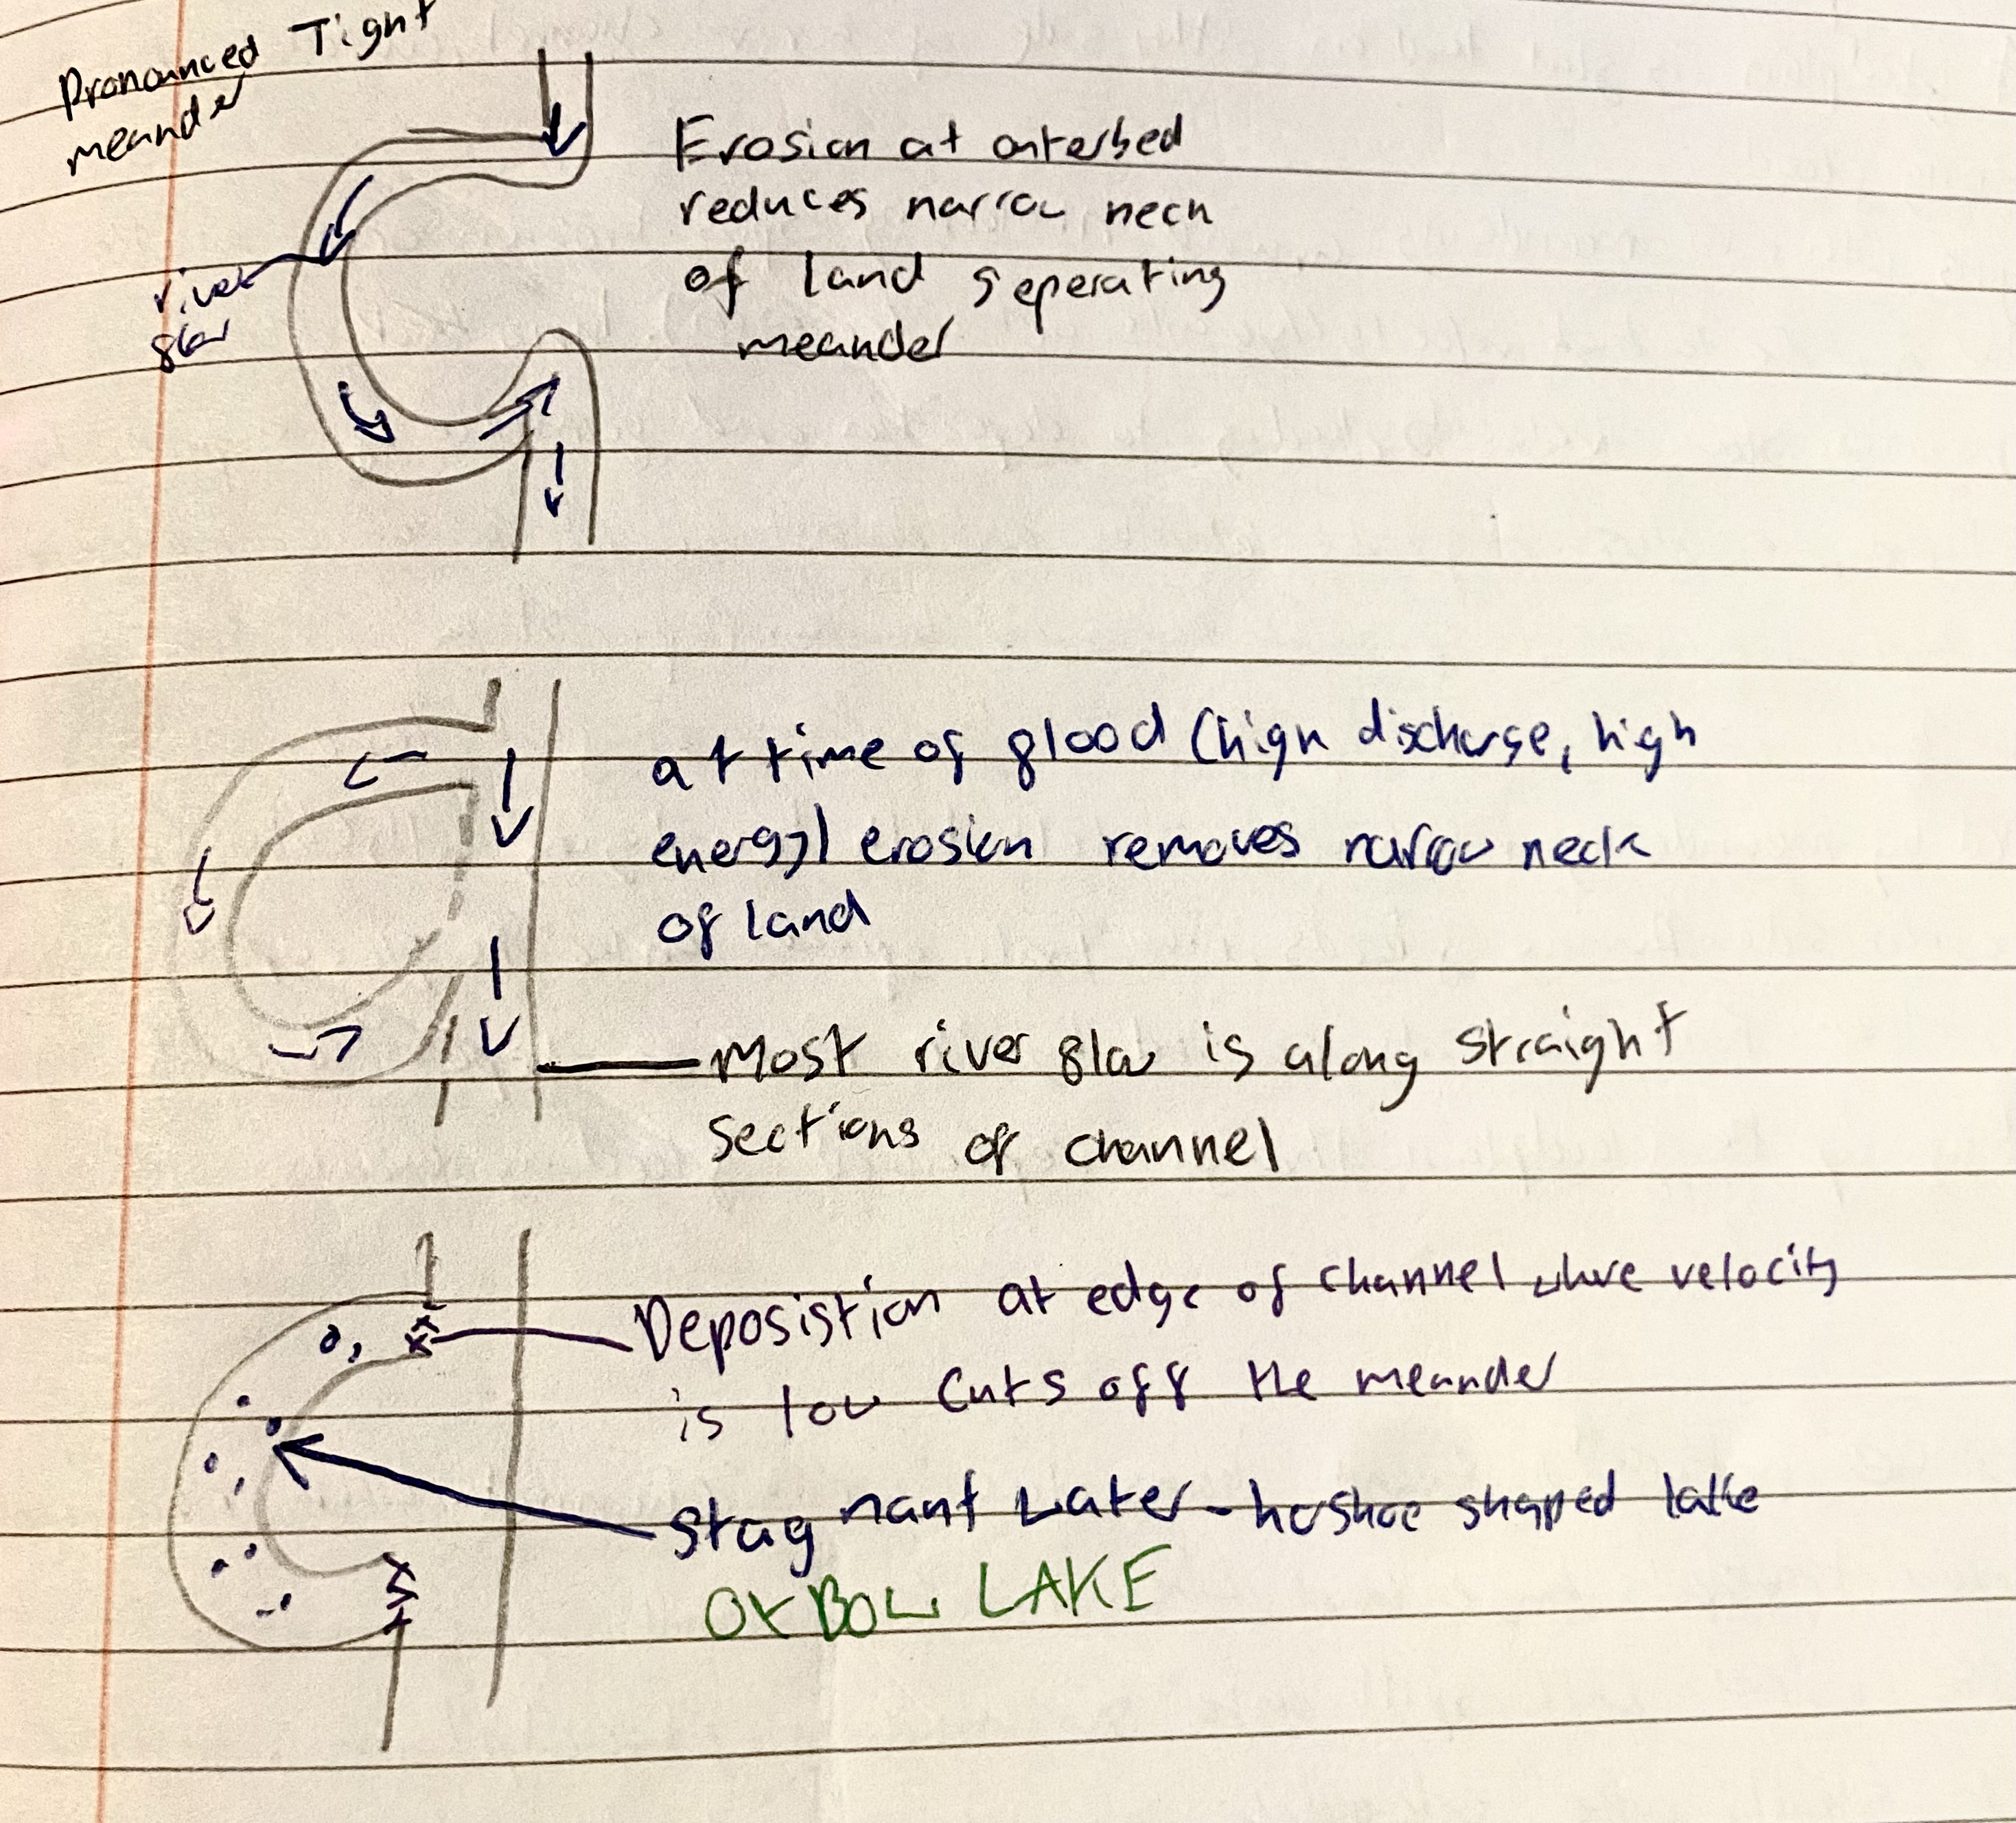 Pronounced Tight
meander
Erosion at outerbed
reduces narrow neck
of land seperating
meander
river
flow
at time of flood (high discharge, high
energy) erosion removes narrow neck
of land
Most river flow is along straight
sections of channel
Deposistion at edge of channel where velocity
is low cuts off the meander
Stagnant water - hoshoe shaped lake
OXBOW LAKE